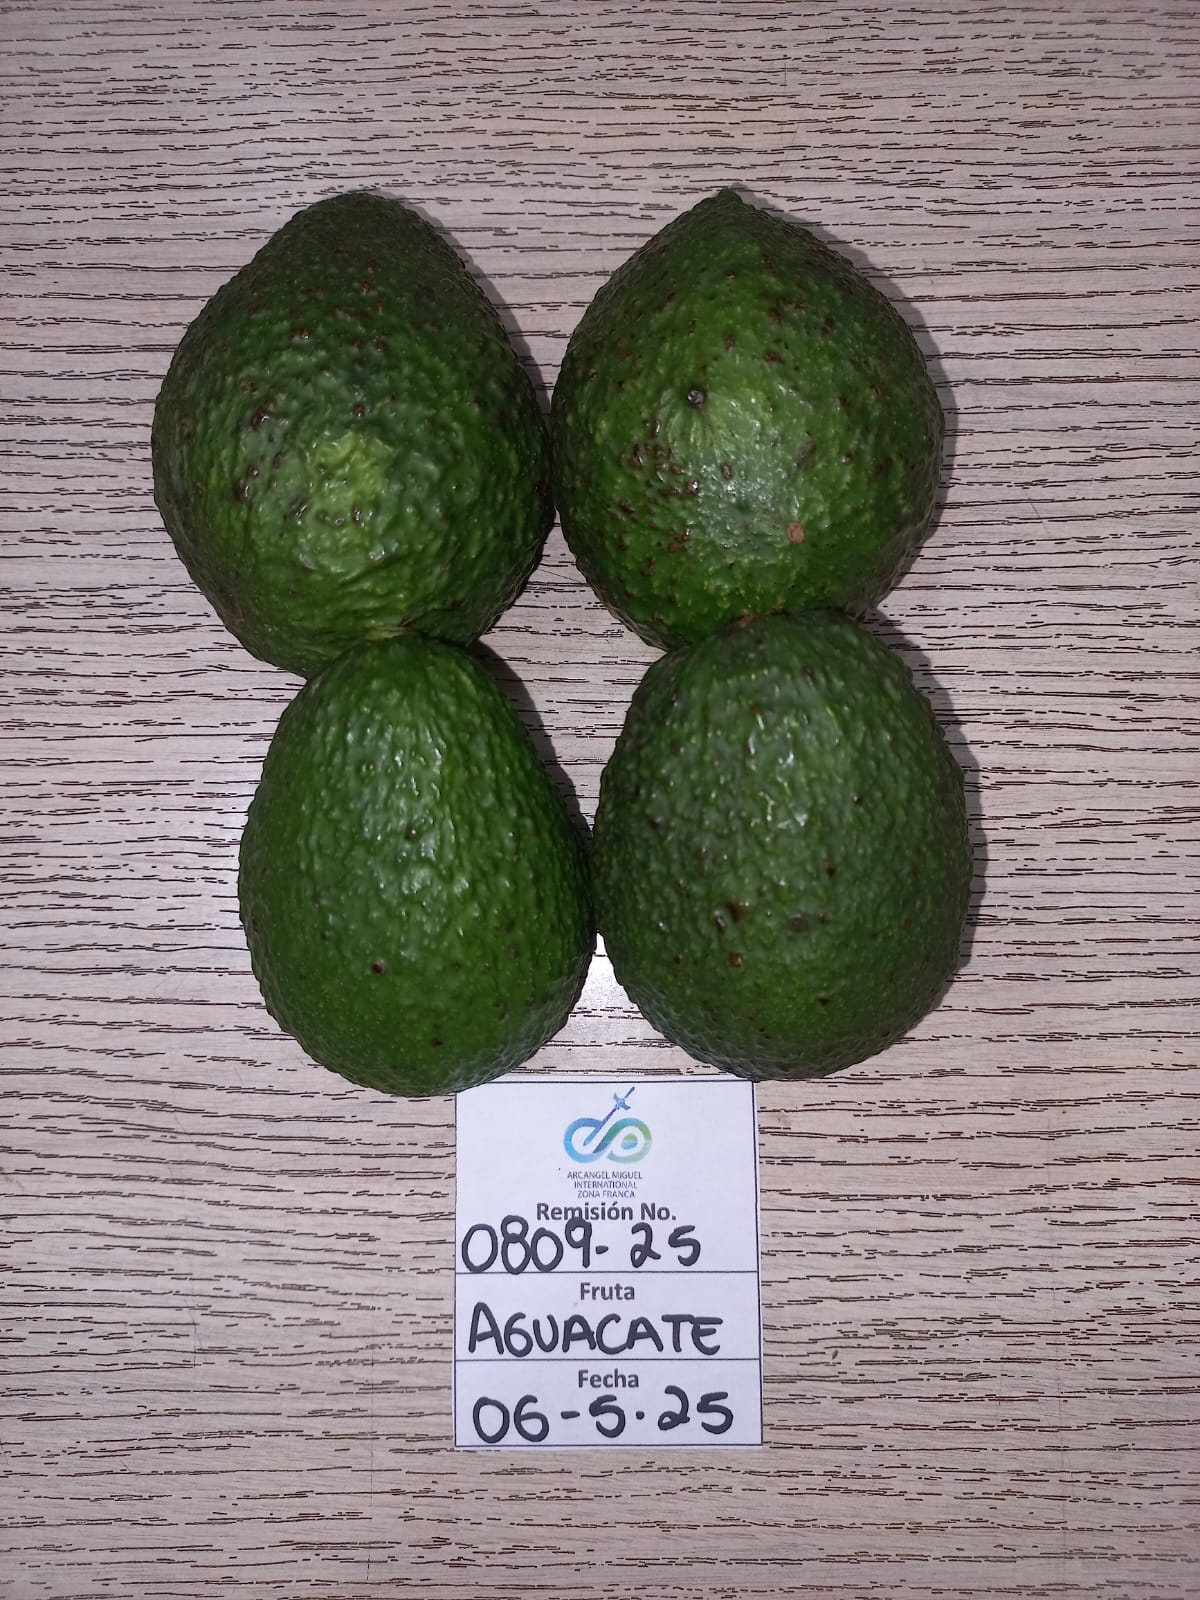 ARCANGEL MIGUEL
INTERNATIONAL
ZONA FRANCA
Remisión No.
0809-25
Fruta
AGUACATE
Fecha
06-5.25